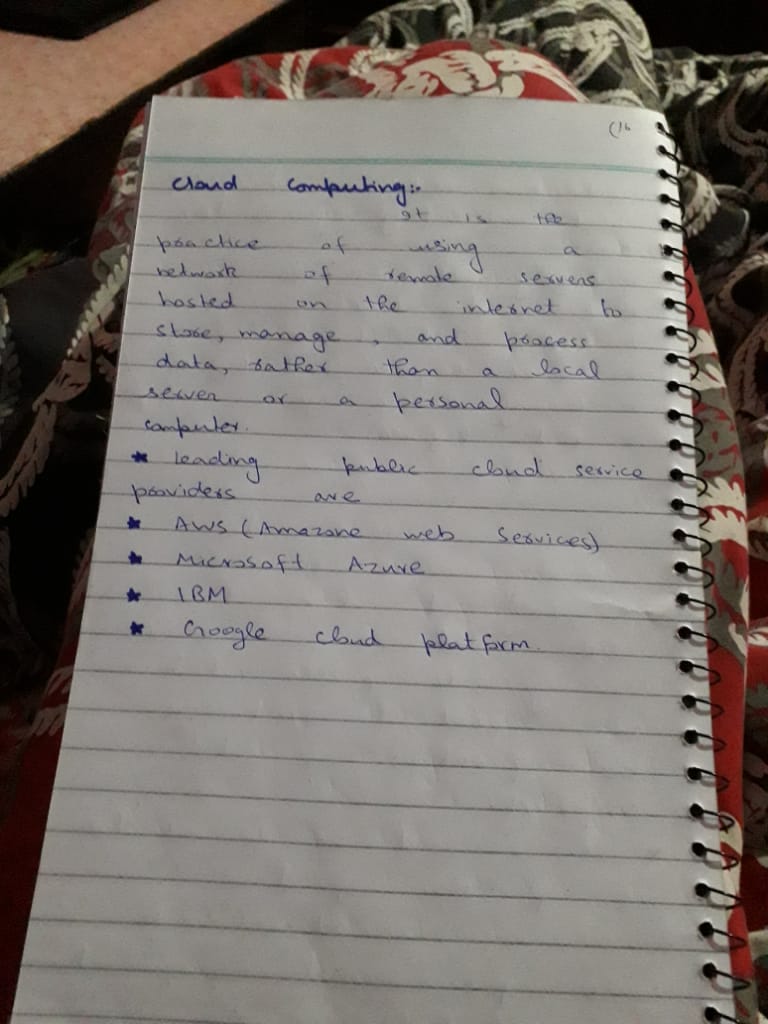 (16
Cloud Computing:-
It is the
practice of using a
network of remote servers
hosted on the internet to
store, manage, and process
data, rather than a local
server or a personal
computer.
* Leading public cloud service
providers are
* AWS (Amazone web Services)
* Microsoft Azure
* IBM
* Google cloud platform.